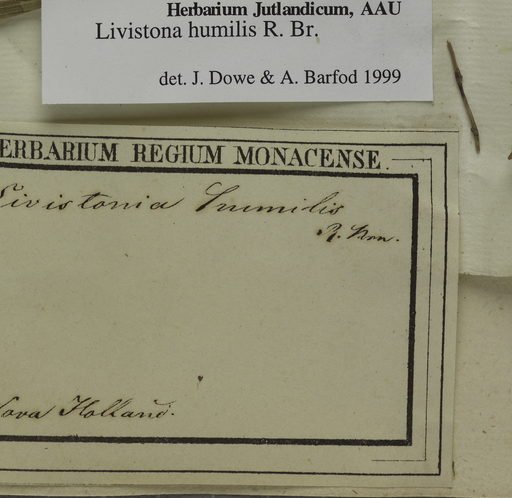 Herbarium Jutlandicum, AAU
Livistona humilis R. Br.
det. J. Dowe & A. Barfod 1999
ERBARIUM REGIUM MONACENSE.
Livistonia humilis
R. Brn.
Nova Holland.